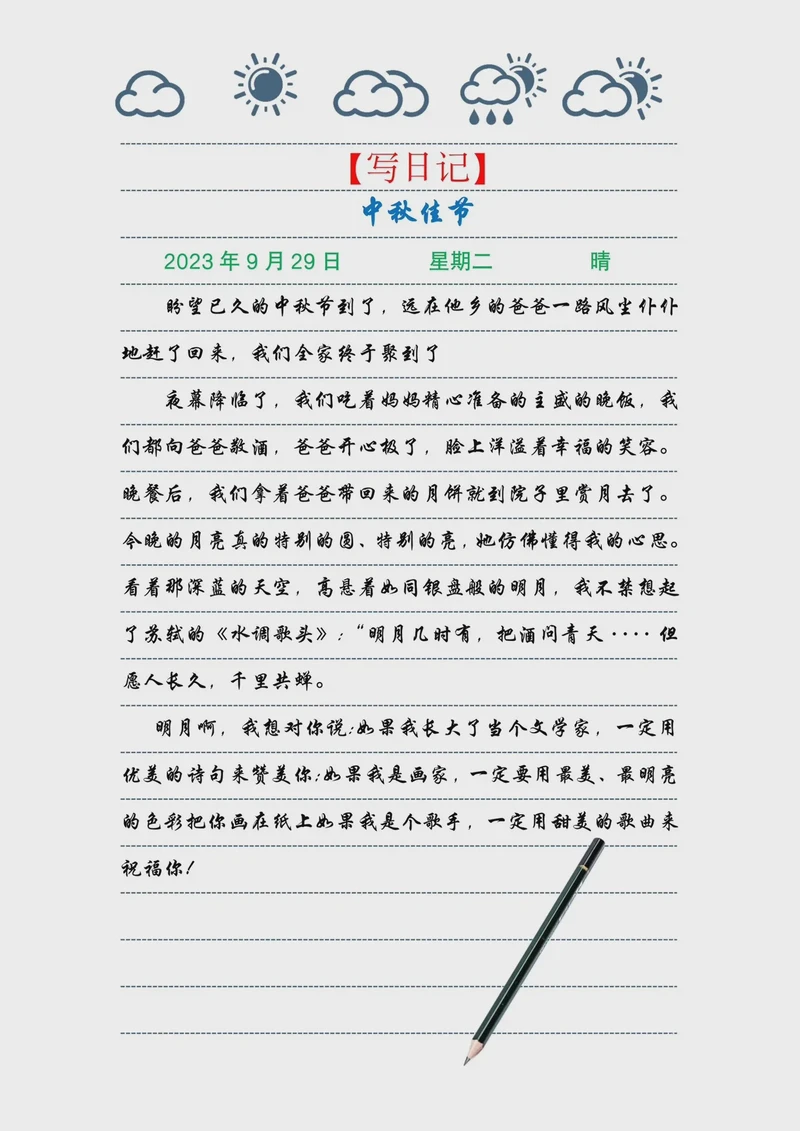 【写日记】
中秋佳节
2023年9月29日 星期二 晴
盼望已久的中秋节到了，远在他乡的爸爸一路风尘仆仆
地赶了回来，我们全家终于聚到了
夜幕降临了，我们吃着妈妈精心准备的主盛的晚饭，我
们都向爸爸敬酒，爸爸开心极了，脸上洋溢着幸福的笑容。
晚餐后，我们拿着爸爸带回来的月饼就到院子里赏月去了。
今晚的月亮真的特别的圆、特别的亮，她仿佛懂得我的心思。
看着那深蓝的天空，高悬着如同银盘般的明月，我不禁想起
了苏轼的《水调歌头》：“明月几时有，把酒问青天····但
愿人长久，千里共蝉。
明月啊，我想对你说:如果我长大了当个文学家，一定用
优美的诗句来赞美你:如果我是画家，一定要用最美、最明亮
的色彩把你画在纸上如果我是个歌手，一定用甜美的歌曲来
祝福你!